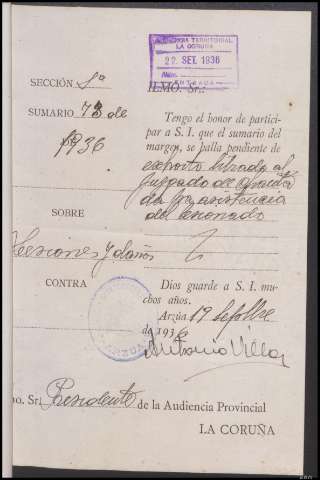 AUDIENCIA TERRITORIAL
LA CORUÑA
22 SET. 1936
Núm.
ENTRADA
SECCIÓN 1ª
ILMO. Sr.:
SUMARIO 73 de
1936
Tengo el honor de partici-
par a S. I. que el sumario del
margen, se halla pendiente de
exhorto librado al
Juzgado de
da por asistencia
del lesionado
SOBRE
Lesiones y daños
CONTRA
Dios guarde a S. I. mu-
chos años.
Arzúa 19 Sepbre
de 1936
Antonio Villar
mo. Sr. Presidente de la Audiencia Provincial
LA CORUÑA